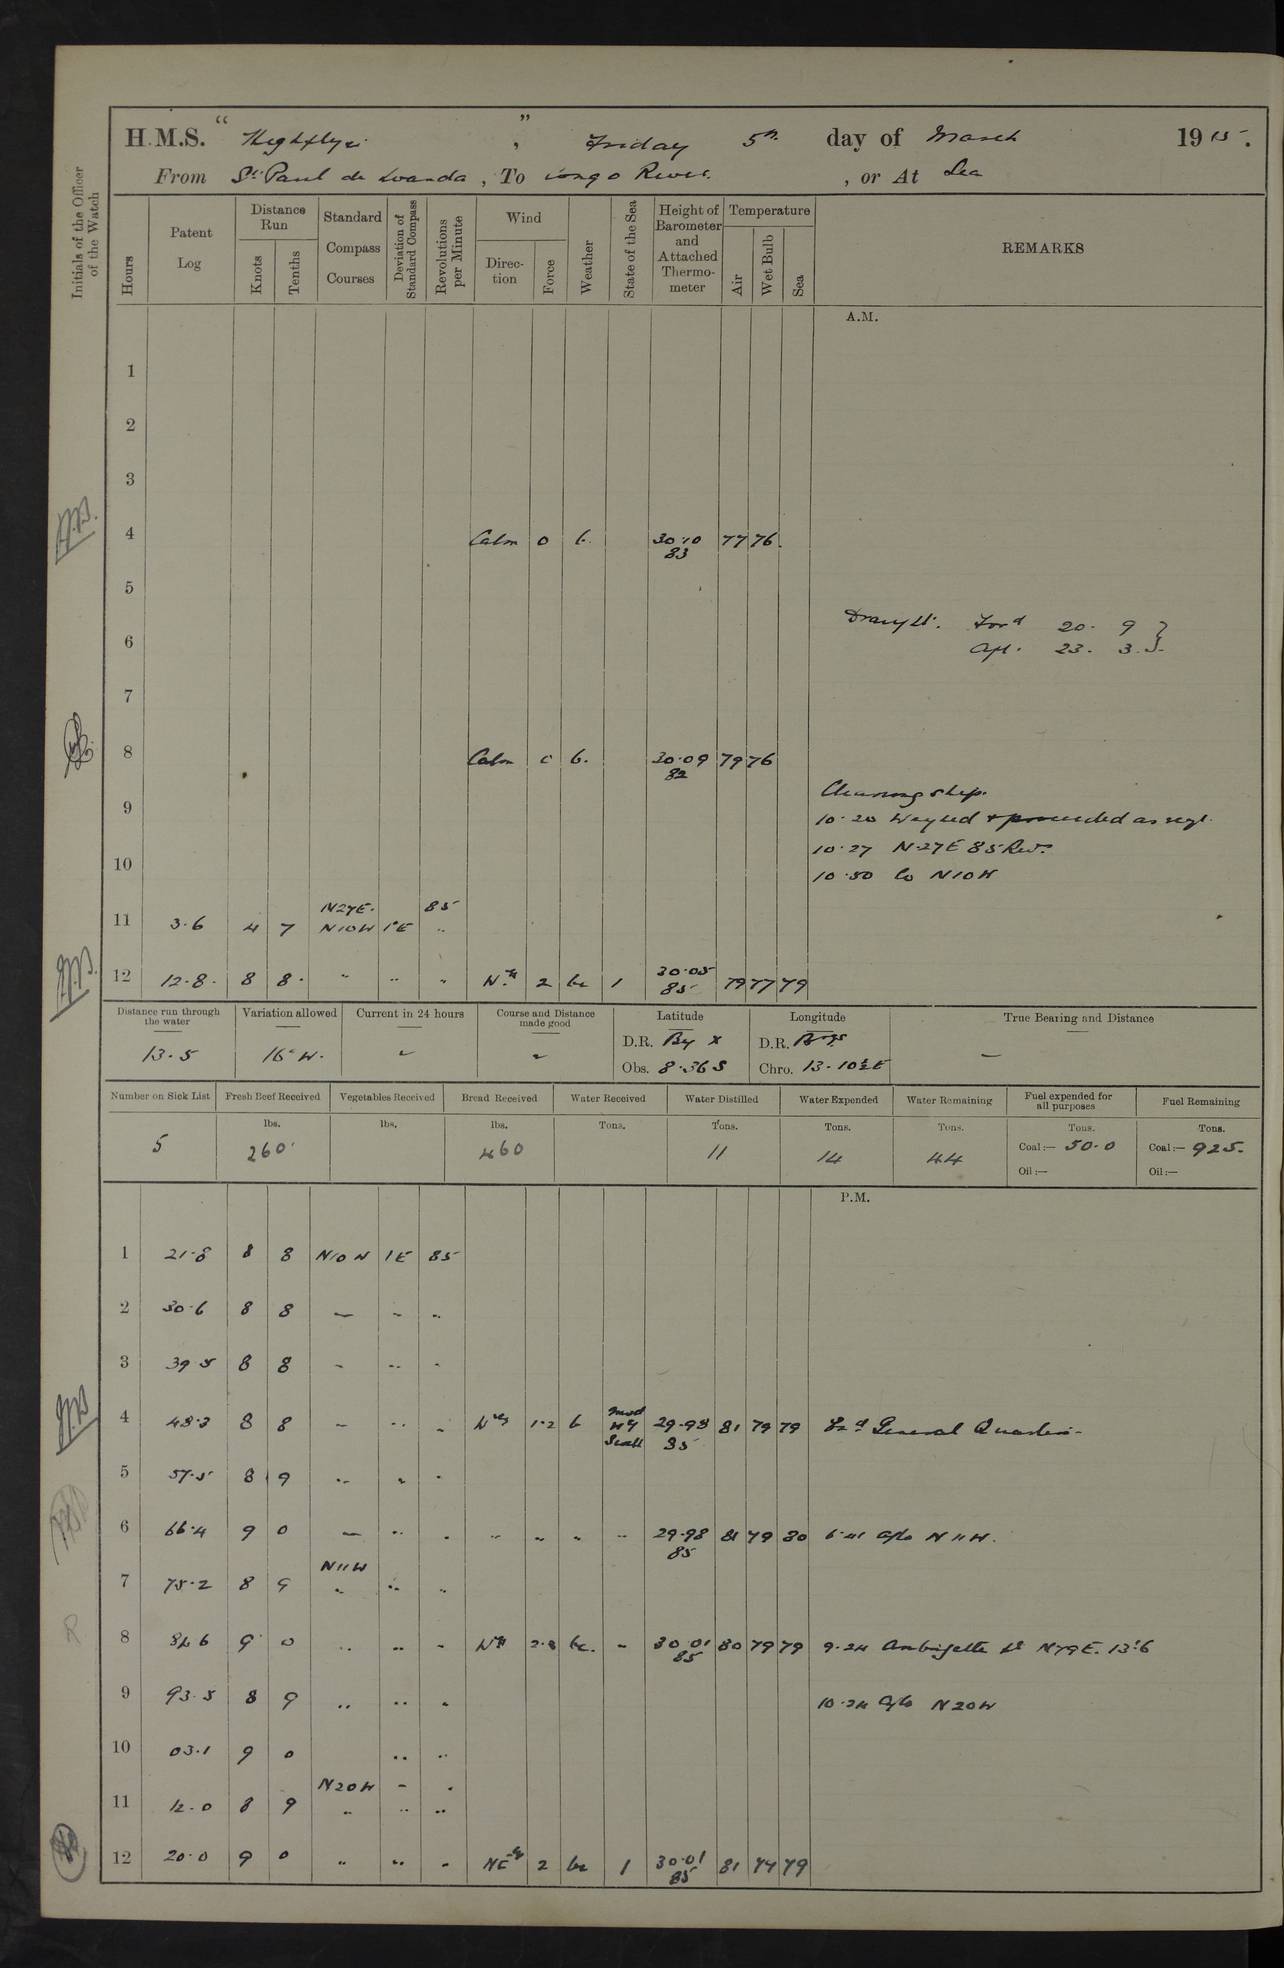 H.M.S. “ Highflyer ” , Friday 5th day of March 1915.
From St. Paul de Loanda , To Congo River. , or At Sea
Initials of the Officer of the Watch
Hours
Patent Log
Distance Run
Knots
Tenths
Standard Compass Courses
Deviation of Standard Compass
Revolutions per Minute
Wind
Direction
Force
Weather
State of the Sea
Height of Barometer and Attached Thermometer
Temperature
Air
Wet Bulb
Sea
REMARKS
A.M.
1
2
3
4 Calm 0 b. 30.10 83 77 76.
5
Draught. Ford 20. 9 }
6 Aft. 23. 3. }
7
8 Calm 0 b. 30.09 82 79 76
Cleaning ship.
9 10.20 Weighed & proceeded as reqt.
10.27 N27E 85 Revs.
10 10.50 Co N10W
N27E. 85
11 3.6 4 7 N10W 1°E "
12 12.8. 8 8. " " " 2 bc 1 30.05 85 79 77 79
Distance run through the water 13.5
Variation allowed 16° W.
Current in 24 hours ~
Course and Distance made good ~
Latitude
D.R.
Obs. 8.36 S
Longitude
D.R.
Chro. 13.10½ E
True Bearing and Distance —
Number on Sick List 5
Fresh Beef Received lbs. 260
Vegetables Received lbs.
Bread Received lbs. 460
Water Received Tons.
Water Distilled Tons. 11
Water Expended Tons. 14
Water Remaining Tons. 44
Fuel expended for all purposes Tons. Coal:— 50.0 Oil:—
Fuel Remaining Tons. Coal:— 925. Oil:—
P.M.
1 21.8 8 8 N10W 1E 85
2 30.6 8 8 " " "
3 39.5 8 8 " " "
4 48.3 8 8 " " " 1.2 b 29.98 85 81 79 79 Exd General Quarters
5 57.5 8 9 " " "
6 66.4 9 0 " " " " " " " 29.98 85 81 79 80 6.41 a/c N11W.
N11W
7 75.2 8 9 " " "
8 84.6 9 0 " " " 2.3 bc. " 30.01 85 80 79 79 9.24 Ambrizette Lt N79E. 13'.6
9 93.5 8 9 " " " 10.24 a/c N20W
10 03.1 9 0 " "
N20W " "
11 12.0 8 9 " " "
12 20.0 9 0 " " " 2 bc 1 30.01 85 81 77 79